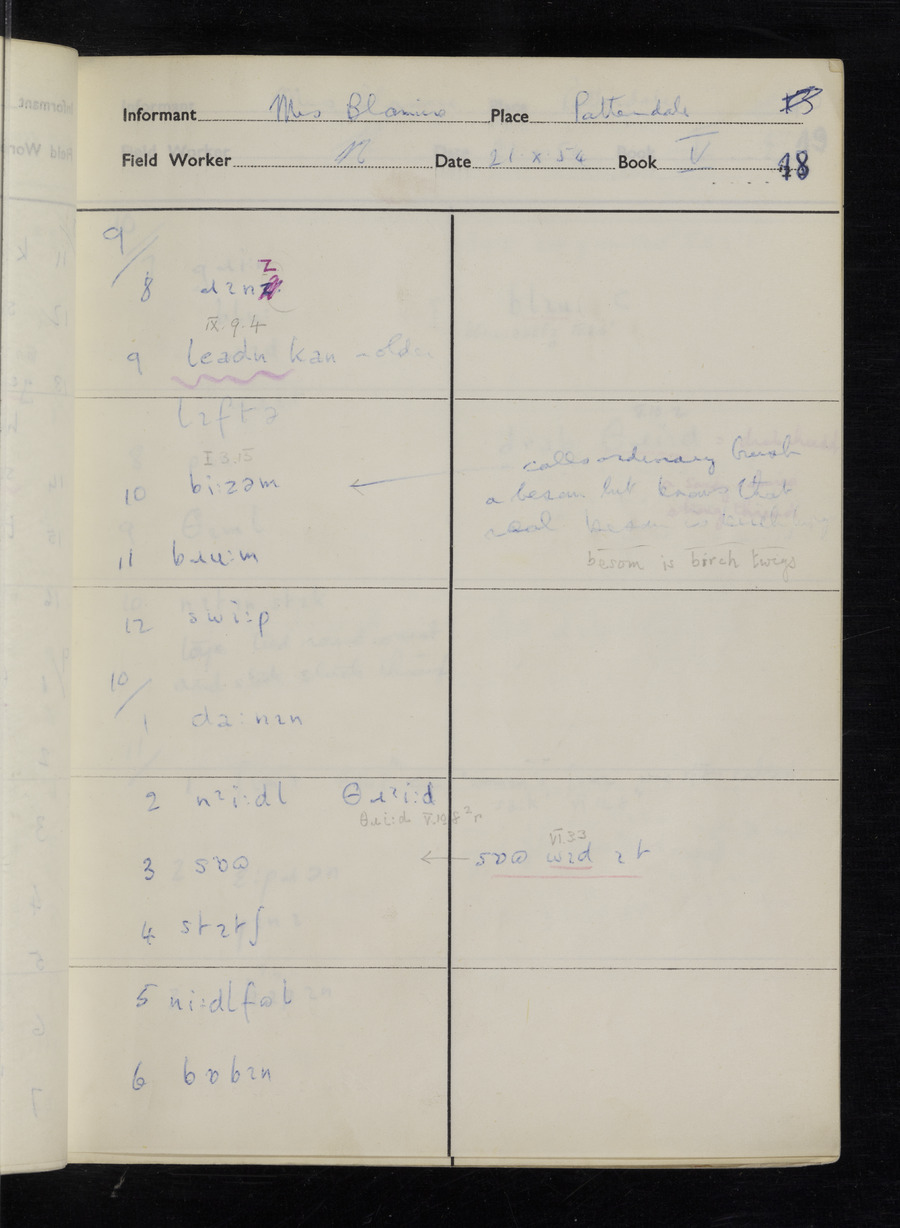 Informant Mrs Place Patterdale
Field Worker N Date 21.X.54 Book V 48
9/
8
IX.9.4
9 leadn kan older
lɪftə
I.3.15
10 bi:zəm calls ordinary brush
a besom but knows that
real besom is
besom is birch twigs
11 bɹu:m
12 swi:p
10/
1 da:nɪn
2 nᶦi:dl θɹᶦi:d
θɹi:d V.10
VI.33
3 sʊə sʊə wɪd ɪt
4 stɪtʃ
5 ni:dlfəl
6 bɒbɪn